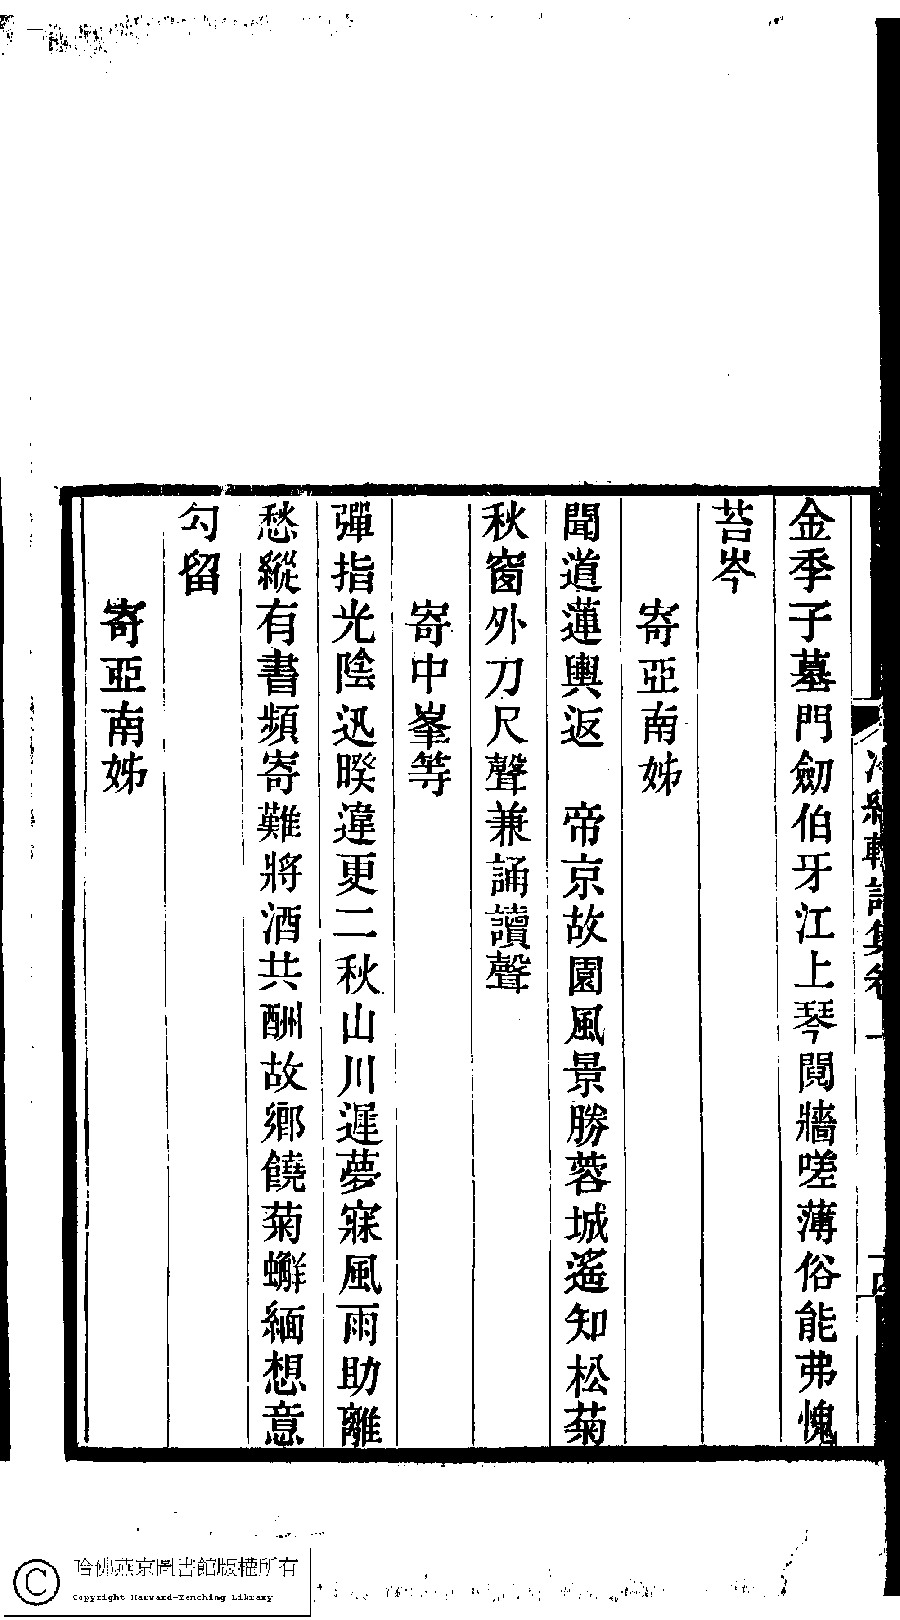 金季子墓門劒伯牙江上琴鬩牆嗟薄俗能弗愧
苔岑
寄亞南姊
聞道蓮輿返 帝京故園風景勝蓉城遙知松菊
秋窗外刀尺聲兼誦讀聲
寄中峯等
彈指光陰迅暌違更二秋山川遲夢寐風雨助離
愁縱有書頻寄難將酒共酬故鄉饒菊蠏緬想意
勾留
寄亞南姊
哈佛燕京圖書館版權所有
Copyright Harvard-Yenching Library